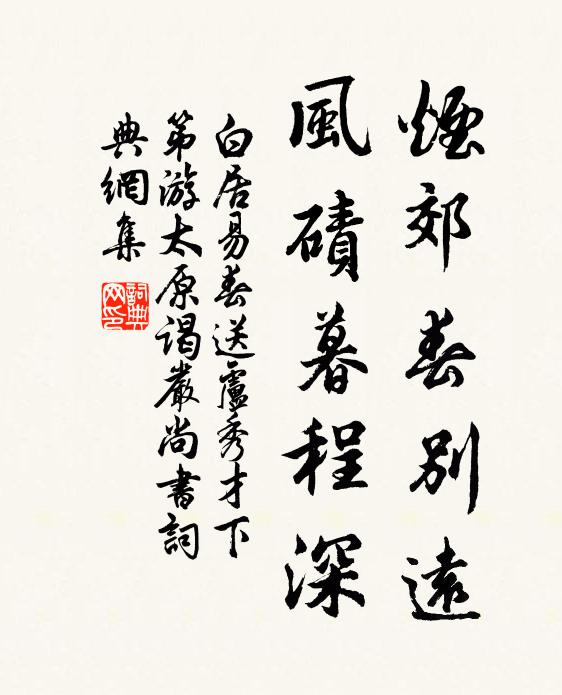 煙郊春別遠
風磧暮程深
白居易春送盧秀才下
第游太原謁嚴尚書詞
典網集
詞典網印